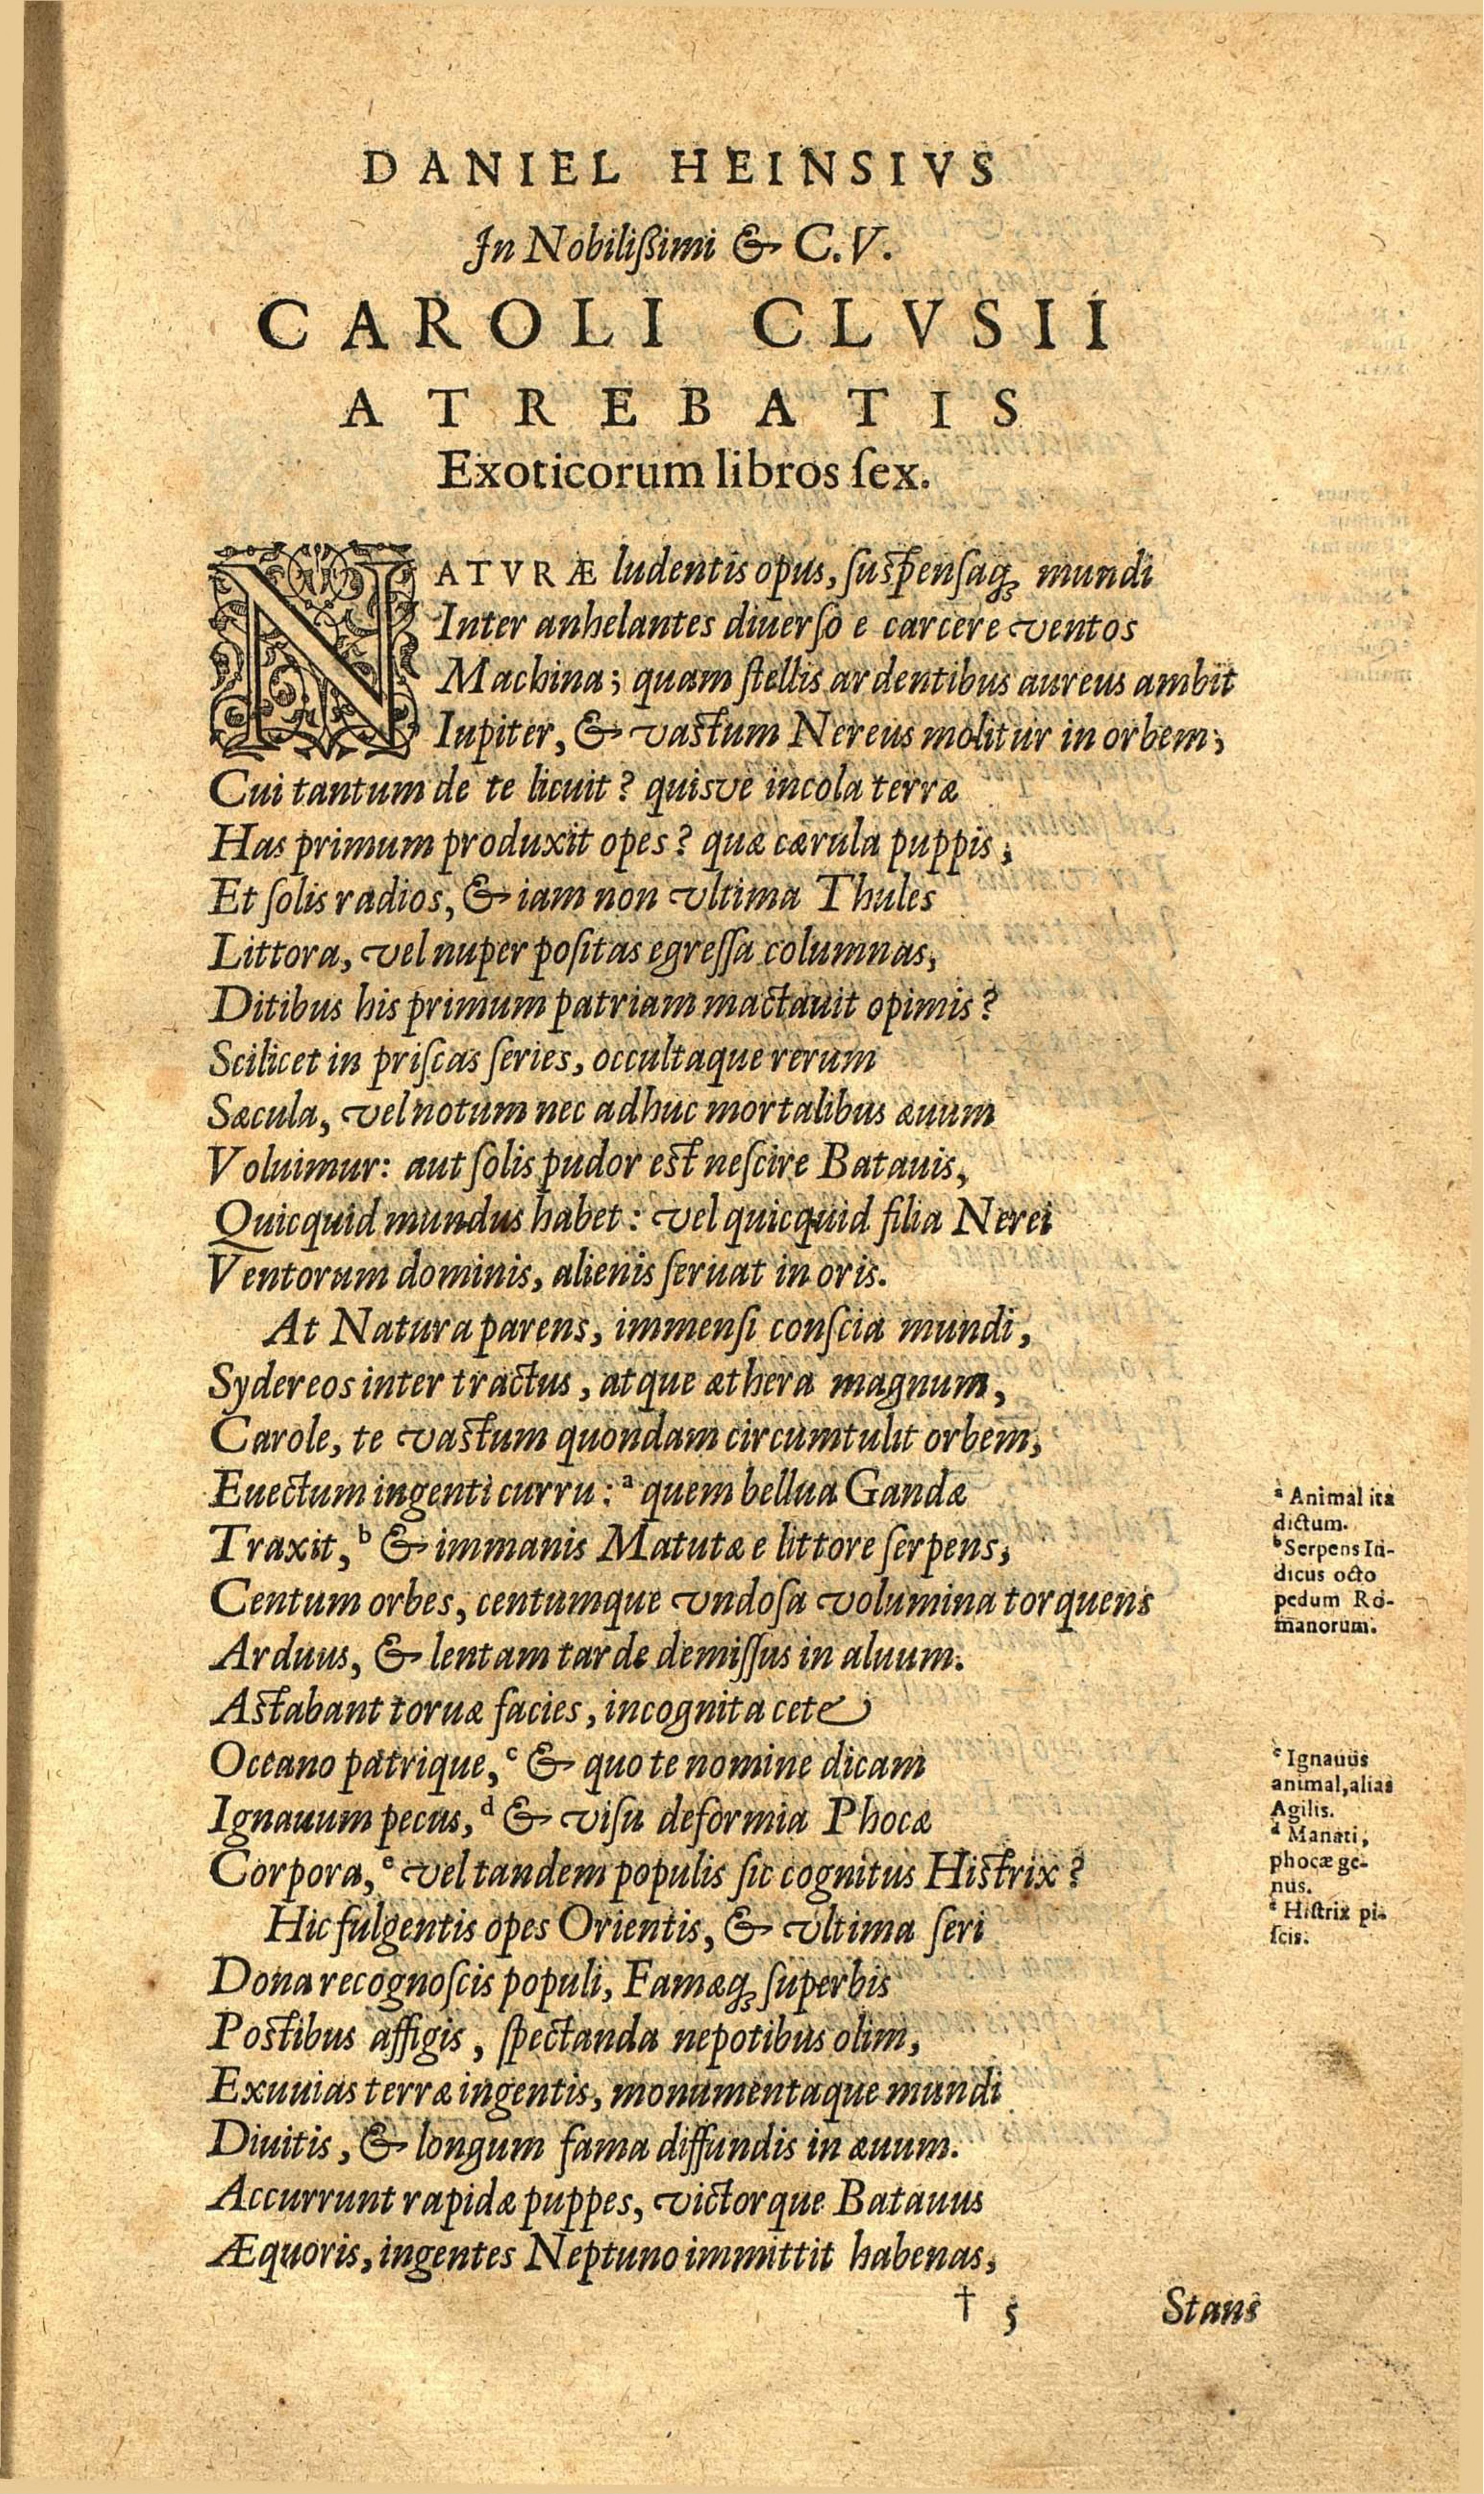 DANIEL HEINSIVS
In Nobilißimi & C.V.
CAROLI CLVSII
ATREBATIS
Exoticorum libros ſex.
NATVRÆ ludentis opus, ſuſpenſaq; mundi
Inter anhelantes diuerſo e carcere ventos
Machina; quam ſtellis ardentibus aureus ambit
Iupiter, & vaſtum Nereus molitur in orbem;
Cui tantum de te licuit? quisve incola terræ
Has primum produxit opes? quæ cærula puppis;
Et ſolis radios, & iam non vltima Thules
Littora, vel nuper poſitas egreſſa columnas,
Ditibus his primum patriam mactauit opimis?
Scilicet in priſcas ſeries, occultaque rerum
Sæcula, vel notum nec adhuc mortalibus æuum
Voluimur: aut ſolis pudor eſt neſcire Batauis,
Quicquid mundus habet: vel quicquid filia Nerei
Ventorum dominis, alienis ſeruat in oris.
At Natura parens, immenſi conſcia mundi,
Sydereos inter tractus, atque æthera magnum,
Carole, te vaſtum quondam circumtulit orbem,
Euectum ingenti curru: ª quem bellua Gandæ
Traxit, ᵇ & immanis Matutæ e littore ſerpens,
Centum orbes, centumque vndoſa volumina torquens
Arduus, & lentam tarde demiſſus in aluum.
Aſtabant toruæ facies, incognita cete
Oceano patrique, ᶜ & quo te nomine dicam
Ignauum pecus, ᵈ & viſu deformia Phocæ
Corpora, ᵉ vel tandem populis ſic cognitus Hiſtrix?
Hic fulgentis opes Orientis, & vltima ſeri
Dona recognoſcis populi, Famæq; ſuperbis
Poſtibus affigis, ſpectanda nepotibus olim,
Exuuias terræ ingentis, monumentaque mundi
Diuitis, & longum fama diffundis in æuum.
Accurrunt rapidæ puppes, victorque Batauus
Æquoris, ingentes Neptuno immittit habenas,
† 5 Stans
ª Animal ita
dictum.
ᵇ Serpens In-
dicus octo
pedum Ro-
manorum.
ᶜ Ignauus
animal, alias
Agilis.
ᵈ Manati,
phocæ ge-
nus.
ᵉ Hiſtrix pi-
ſcis.